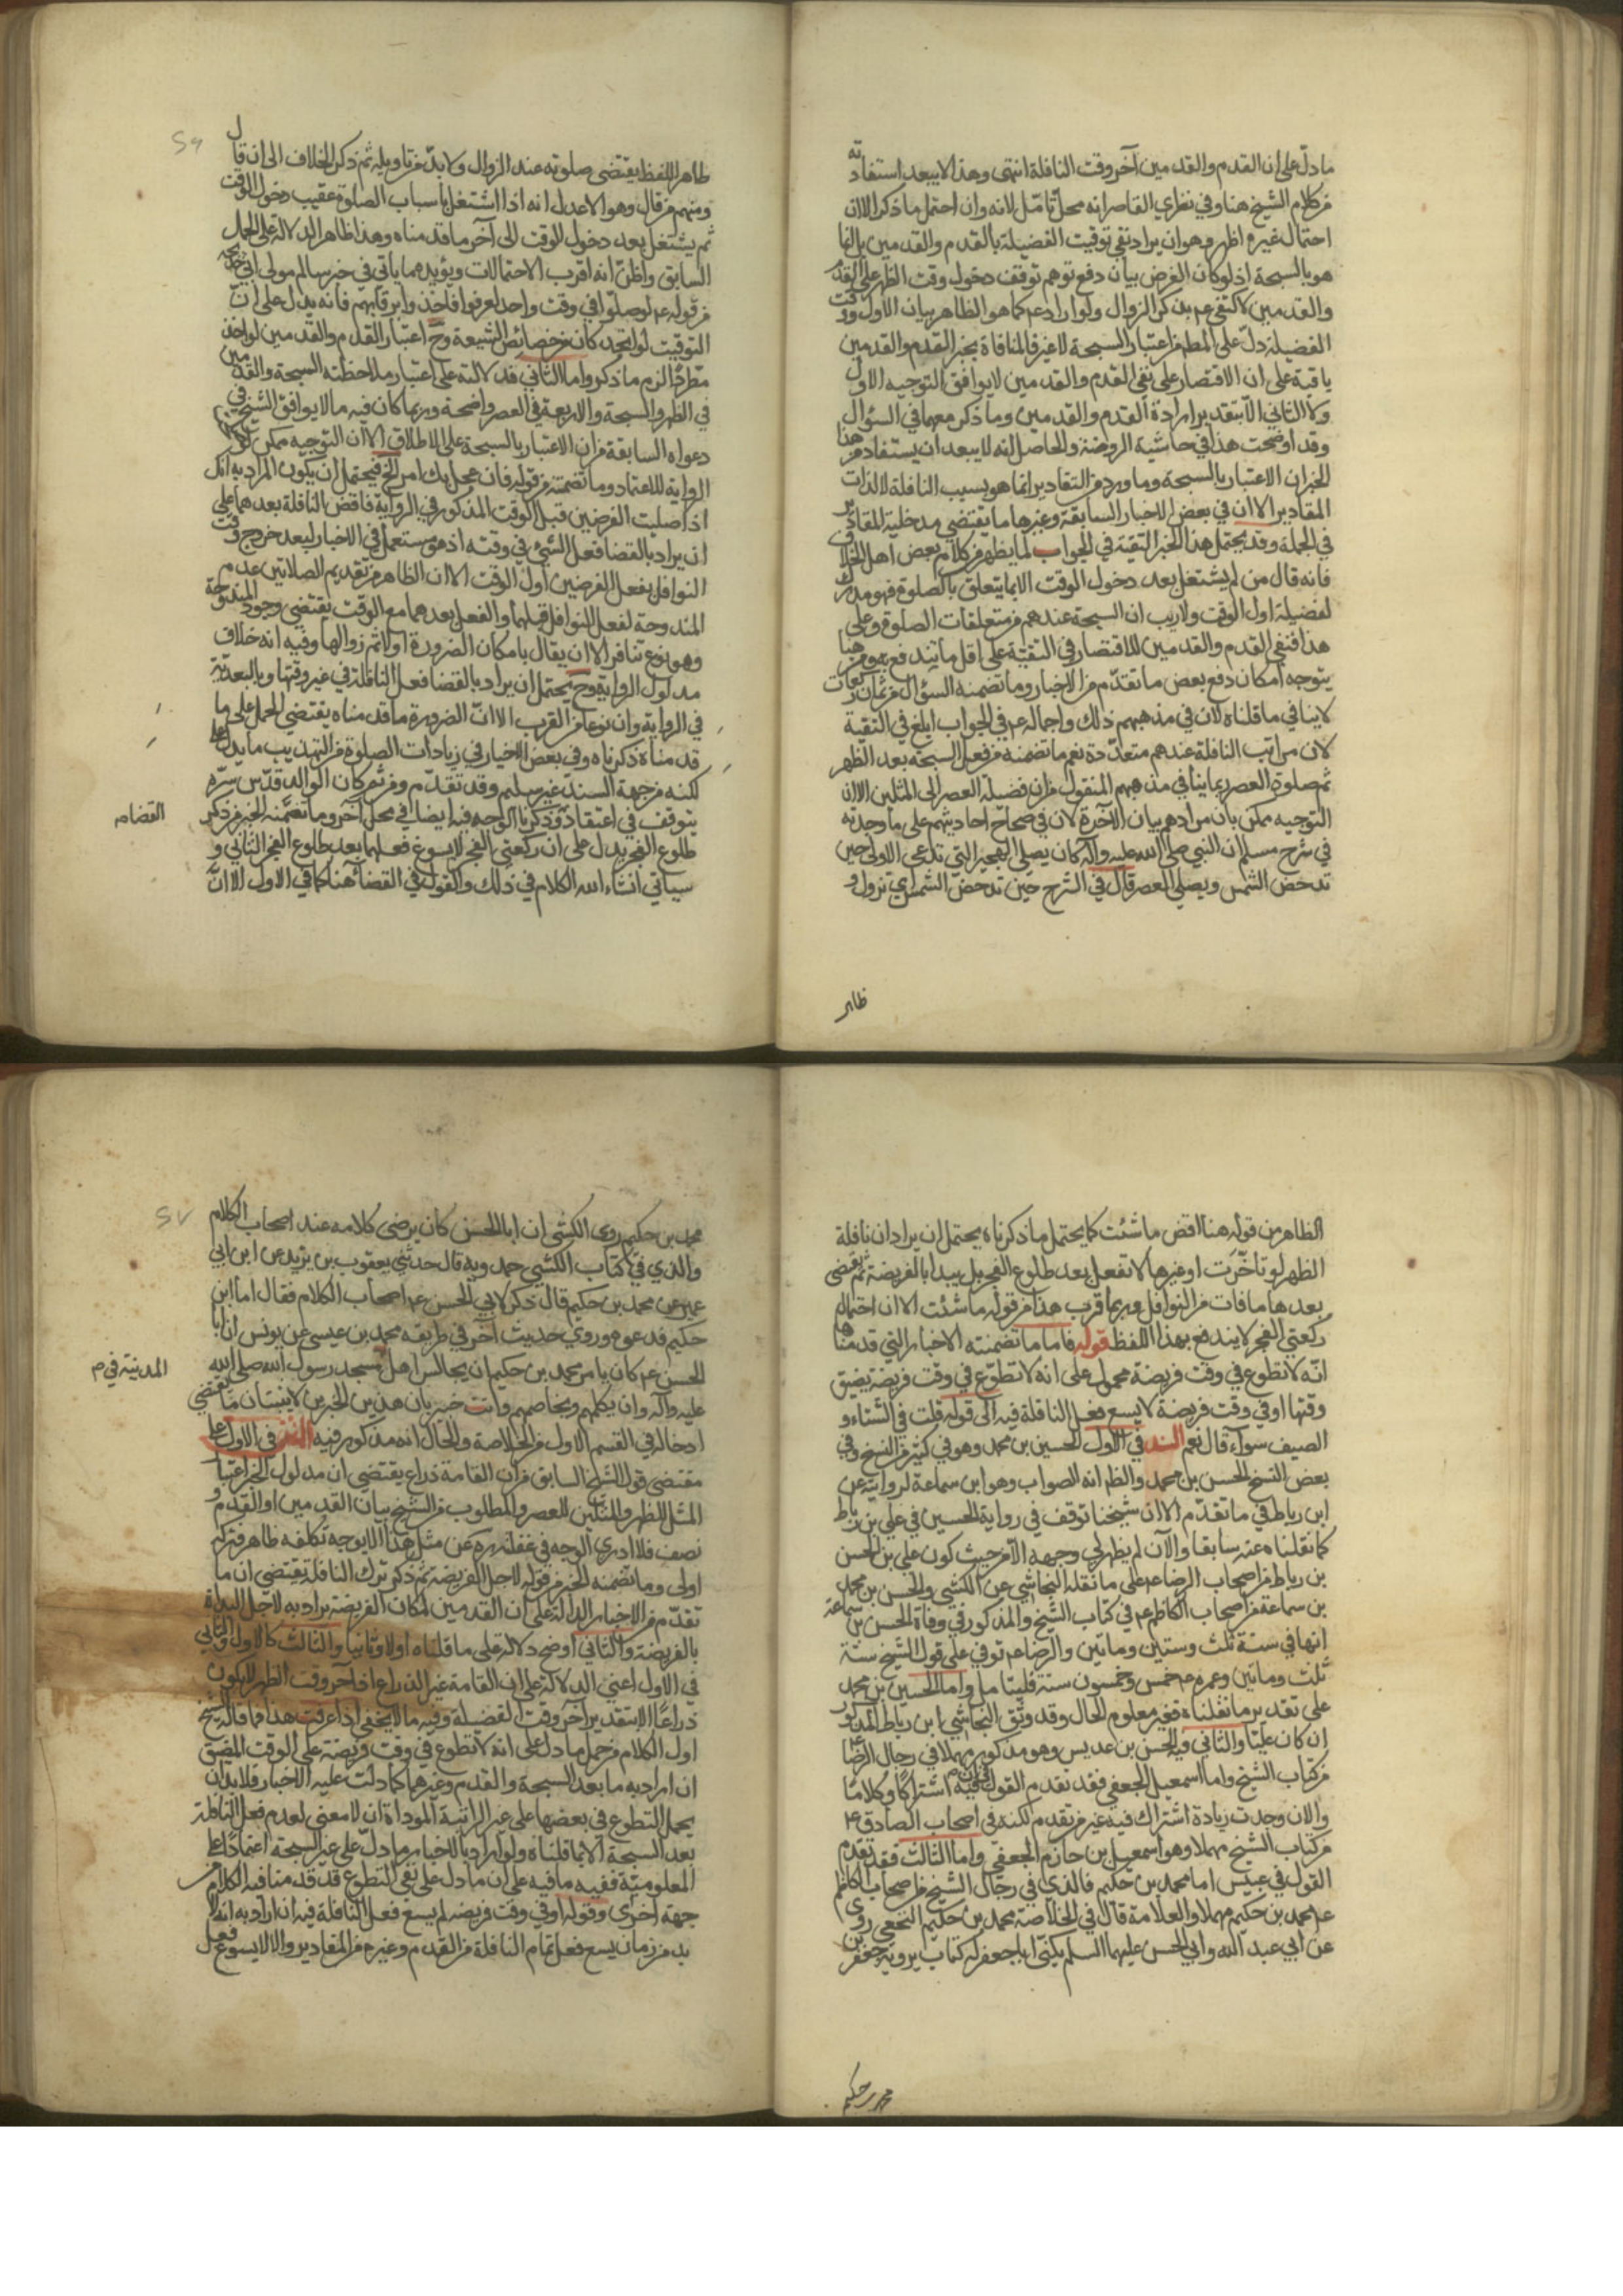 ما دلّ على ان القدم والقدمين آخر وقت النافلة انتهى وهذا لا يبعد استفادته
من كلام الشيخ هنا وفي نظري القاصر انه محل تامّل لانه وان احتمل ما ذكر الا ان
احتمال غيره اظهر وهو ان يراد نفي توقيت الفضيلة بالقدم والقدمين بل انما
هو بالسبحة اذ لو كان الغرض بيان دفع توهم توقف دخول وقت الظهر على القدم
والقدمين لاكتفى عم بذكر الزوال ولو اراد عم كما هو الظاهر بيان الاول ووقت
الفضيلة دلّ على المط من اعتبار السبحة لا غير فالمنافاة بخبر القدم والقدمين
باقية على ان الاقتصار على نفي القدم والقدمين لا يوافق التوجيه الاول
ولا الثاني الا بتقدير ارادة القدم والقدمين وما ذكر معهما في السؤال
وقد اوضحت هذا في حاشية الروضة والحاصل انه لا يبعد ان يستفاد من هذا
الخبر ان الاعتبار بالسبحة وما ورد من التقادير انما هو بسبب النافلة لا لذات
المقادير الا ان في بعض الاخبار السابقة وغيرها ما يقتضي مدخلية المقادير
في الجملة وقد يحتمل هذا الخبر التقية في الجواب لما يظهر من كلام بعض اهل الخلاف
فانه قال من لم يشتغل بعد دخول الوقت الا بما يتعلق بالصلوة فهو مدرك
لفضيلة اول الوقت ولا ريب ان السبحة عندهم من متعلقات الصلوة وعلى
هذا فنفي القدم والقدمين للاقتصار في التقية على اقل ما تندفع به ومن هنا
يتوجه امكان دفع بعض ما تقدّم من الاخبار وما تضمنه السؤال من ثمان ركعات
لا ينافي ما قلناه لان في مذهبهم ذلك واجماله عم في الجواب ابلغ في التقية
لان مراتب النافلة عندهم متعدّدة نعم ما تضمنه من فعل السبحة بعد الظهر
ثم صلوة العصر ربما ينافي مذهبهم المنقول من ان فضيلة العصر الى المثلين الا ان
التوجيه ممكن بان مرادهم بيان الآخرة لان في صحاح احاديثهم على ما وجدته
في شرح مسلم ان النبي صلى الله عليه وآله كان يصلي الهجير التي تدعى الاولى حين
تدحض الشمس ويصلي العصر قال في الشرح حين تدحض الشمس اي تزول و
ظاهر
ظاهر اللفظ يقتضي صلوته عند الزوال ولا بدّ من تاويله ثم ذكر الخلاف الى ان قال
ومنهم من قال وهو الاعدل انه اذا اشتغل باسباب الصلوة عقيب دخول الوقت
ثم يشتغل بعد دخول الوقت الى آخر ما قدمناه وهذا ظاهر الدلالة على الحمل
السابق واظنّ انه اقرب الاحتمالات ويؤيده ما ياتي في خبر سالم مولى ابي خديجة
من قوله عم لو صلّوا في وقت واحد لعرفوا فاخذ وا برقابهم فانه يدل على انّ
التوقيت لو اتحد كان من خصائص الشيعة وح اعتبار القدم والقدمين لو اخذ
مطردا لزم ما ذكر واما الثاني فدلالته على اعتبار ملاحظته السبحة والقدمين
في الظهر والسبحة والاربعة في العصر واضحة وربما كان فيه ما لا يوافق الشيخ في
دعواه السابقة من ان الاعتبار بالسبحة على الاطلاق الا ان التوجيه ممكن
الرواية للاعتماد وما تضمنته من قوله فان عجل بك امر الخ فيحتمل ان يكون المراد به انك
اذا صليت الفرضين قبل الوقت المذكور في الرواية فاقض النافلة بعدهما على
ان يراد بالقضا فعل الشئ في وقته اذ هو مستعمل في الاخبار لبعد خروج وقت
النوافل بفعل الفرضين اول الوقت الا ان الظاهر من تقديم الصلاتين عدم
المندوحة لفعل النوافل قبلهما والفعل بعدهما مع الوقت يقتضي وجود المندوحة
وهو نوع تنافر الا ان يقال بامكان الضرورة اولا ثم زوالها وفيه انه خلاف
مدلول الرواية وح يحتمل ان يراد بالقضا فعل النافلة في غير وقتها وبالبعدية
في الرواية وان نوعا من القرب الا انّ الضرورة ما قدمناه يقتضي الحمل على ما
قدمناه ذكرناه وفي بعض الاخبار في زيادات الصلوة من التهذيب ما يدل على
لكنه من جهة السند غير سليم وقد تقدّم ومن ثم كان الوالد قدّس سرّه
يتوقف في اعتقاد وذكرنا الوجه فيه ايضا في محل آخر وما تضمّنه الخبر من ذكر
القضاء م
طلوع الفجر يدل على ان ركعتي الفجر لا يسوغ فعلهما بعد طلوع الفجر الثاني و
سياتي انشاء الله الكلام في ذلك والقول في القضا هنا كما في الاول الا انّ
الظاهر من قوله هنا اقض ما شئت كما يحتمل ما ذكرناه يحتمل ان يراد ان نافلة
الظهر لو تاخّرت او غيرها لا تفعل بعد طلوع الفجر بل يبدا بالفريضة ثم يقضى
بعدها ما فات من النوافل وربما قرب هذا من قوله ما شئت الا ان احتمال
ركعتي الفجر لا يندفع بهذا اللفظ قوله فاما ما تضمنته الاخبار التي قدمناها
انّه لا تطوع في وقت فريضة محمول على انه لا تطوّع في وقت فريضة يضيق
وقتها او في وقت فريضة لا يسع فعل النافلة فيه الى قوله قلت في الشتاء و
الصيف سواء قال نعم السند في الاول الحسين بن محمد وهو في كثير من النسخ وفي
بعض النسخ الحسن بن محمد والظ انه الصواب وهو ابن سماعة لروايته عن
ابن رباط في ما تقدّم الا ان شيخنا توقف في رواية الحسين في علي بن رباط
كما نقلناه عنه سابقا والآن لم يظهر لي وجهه الا من حيث كون علي بن الحسن
بن رباط من اصحاب الرضا عم على ما نقله النجاشي عن الكشي والحسن بن محمد
بن سماعة من اصحاب الكاظم عم في كتاب الشيخ والمذكور في وفاة الحسن بن سماعة
انها في سنة ثلث وستين وماتين والرضا عم توفي على قول الشيخ سنة
ثلث وماتين وعمره عم خمس وخمسون سنة فليتامل واما الحسين بن محمد
على تقدير ما نقلناه فغير معلوم الحال وقد وثق النجاشي ابن رباط المذكور
ان كان عليّا والثاني فيه الحسن بن عديس وهو مذكور مهملا في رجال الرضا
من كتاب الشيخ واما اسمعيل الجعفي فقد تقدم القول فيه اشتراكا وكلاما
والان وجدت زيادة اشتراك فيه غير من تقدم لكنه في اصحاب الصادق ع
من كتاب الشيخ مهملا وهو اسمعيل بن حازم الجعفي واما الثالث فقد تقدم
القول في عبيس اما محمد بن حكيم فالذي في رجال الشيخ من اصحاب الكاظم
عم محمد بن حكيم مهملا والعلامة قال في الخلاصة محمد بن حكيم الخثعمي روى
عن ابي عبد الله وابي الحسن عليهما السلم يكنّى ابا جعفر له كتاب يرويه جعفر بن
محمد بن حكيم
محمد بن حكيم روى الكشي ان ابا الحسن كان يرضى كلامه عند اصحاب الكلام
والذي في كتاب الكشي حمدويه قال حدثني يعقوب بن يزيد عن ابن ابي
عمير عن محمد بن حكيم قال ذكر لابي الحسن عم اصحاب الكلام فقال اما ابن
حكيم فدعوه وروي حديث آخر في طريقه محمد بن عيسى عن يونس ان ابا
الحسن عم كان يامر محمد بن حكيم ان يجالس اهل مسجد رسول الله صلى الله
المدينة في م
عليه وآله وان يكلمهم ويخاصمهم وانت خبير بان هذين الخبرين لا يثبتان ما يقتضي
ادخاله في القسم الاول من الخلاصة والحال انه مذكور فيه المتن في الاول على
مقتضى قول الشيخ السابق من ان القامة ذراع يقتضي ان مدلول الخبر اعتبار
المثل للظهر والمثلين للعصر والمطلوب من الشيخ بيان القدمين او القدم و
نصف فلا ادري الوجه في غفلته ره عن مثل هذا الا بوجه تكلفه ظاهر فتركه
اولى وما تضمنه الخبر من قوله لاجل الفريضة ثم ذكر ترك النافلة يقتضي ان ما
تقدّم من الاخبار الدالة على ان القدمين لمكان الفريضة يراد به لاجل البداة
بالفريضة والثاني اوضح دلالة على ما قلناه اولا وثانيا والثالث كالاول والثاني
في الاول اعني الدلالة على ان القامة غير الذراع اذ آخر وقت الظهر لا يكون
ذراعا الا بتقدير آخر وقت الفضيلة وفيه ما لا يخفى اذا عرفت هذا فما قاله الشيخ
اول الكلام من حمل ما دل على انه لا تطوع في وقت فريضة على الوقت المضيق
ان اراد به ما بعد السبحة والقدم وغيرهما كما دلت عليه الاخبار فلا بد ان
يحمل التطوع في بعضها على غير الراتبة المؤداة اذ لا معنى لعدم فعل النافلة
بعد السبحة الا بما قلناه ولو اراد بالاخبار ما دلّ على غير السبحة اعتمادا على
المعلوميّة ففيه ما فيه على ان ما دل على نفي التطوع قد قدمنا فيه الكلام من
جهة اخرى وقوله او في وقت فريضة لم يسع فعل النافلة فيه ان اراد به انه لا
بد من زمان يسع فعل تمام النافلة من القدم وغيره من المقادير والا لا يسوغ فعل